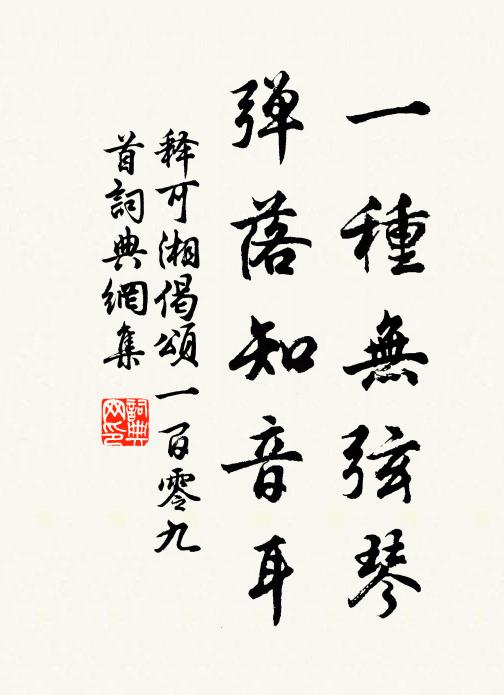 一種無弦琴
弹落知音耳
释可湘偈頌一百零九
首詞典網集
詞典网印